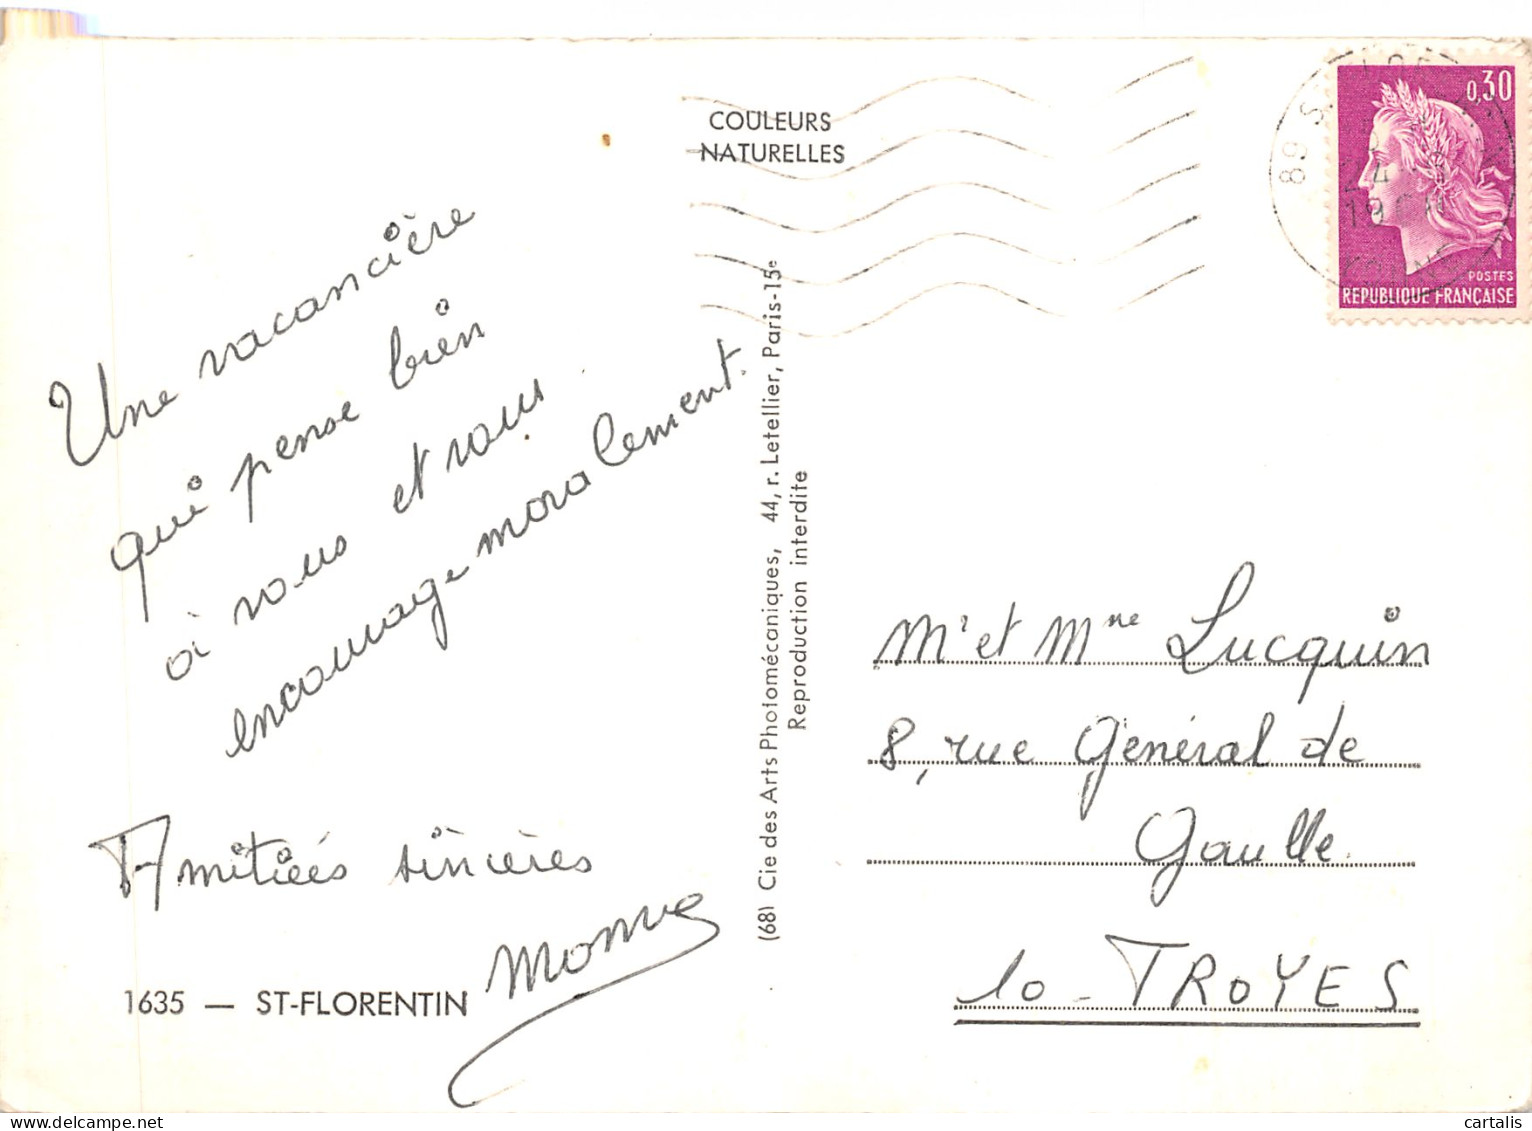 COULEURS
NATURELLES
0,30
POSTES
REPUBLIQUE FRANÇAISE
89 S
24
19
YONNE
Une vacancière
qui pense bien
à vous et vous
encourage moralement.
Amitiés sincères
1635 — ST-FLORENTIN
(68) Cie des Arts Photomécaniques, 44, r. Letellier, Paris-15e
Reproduction interdite
Mr et Mme Lucquin
8, rue Général de
Gaulle.
10 - TROYES
cartalis